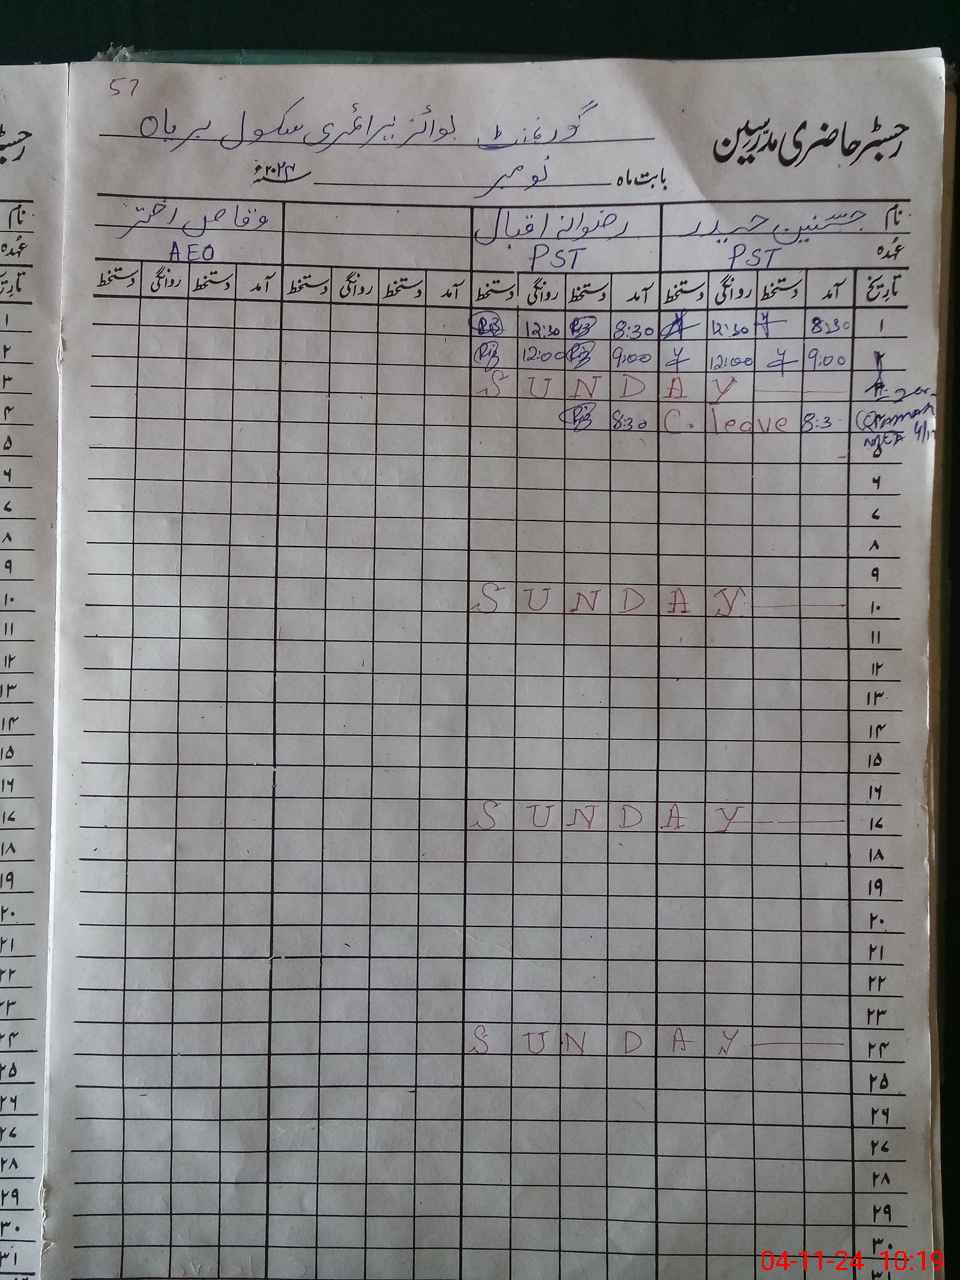 57
رجسٹر حاضری مدرسین
گورنمنٹ بوائز پرائمری سکول
بابت ماہ نومبر سنہ ۲۰۲۴ء
نام حسنین حیدر رضوانہ اقبال وقاص اختر
عہدہ PST PST AEO
تاریخ آمد دستخط روانگی دستخط آمد دستخط روانگی دستخط آمد دستخط روانگی دستخط آمد دستخط روانگی دستخط
۱ 8:30 12:30 8:30 12:30
۲ 9:00 12:00 9:00 12:00
SUNDAY
8:3 C. leave 8:30
۵
۶
۷
۸
۹
۱۰ SUNDAY
۱۱
۱۲
۱۳
۱۴
۱۵
۱۶
۱۷ SUNDAY
۱۸
۱۹
۲۰
۲۱
۲۲
۲۳
۲۴ SUNDAY
۲۵
۲۶
۲۷
۲۸
۲۹
۳۰
04-11-24 10:19